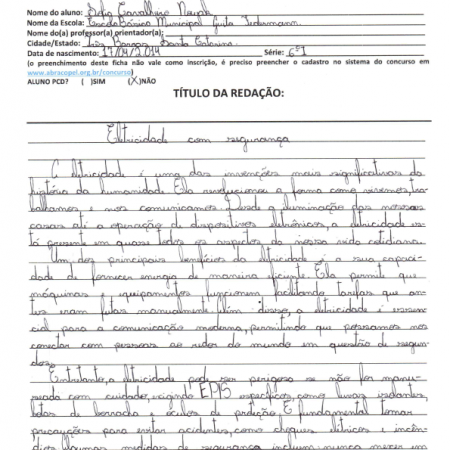 Nome do aluno: Carvalheiro
Nome da Escola: Escola Básica Municipal
Nome do(a) professor(a) orientador(a):
Cidade/Estado: Três Barras Santa Catarina
Data de nascimento: 17/04/2014 Série: 6º1
(o preenchimento deste ficha não vale como inscrição, é preciso preencher o cadastro no sistema do concurso em
www.abracopel.org.br/concurso)
ALUNO PCD? ( )SIM (X)NÃO
TÍTULO DA REDAÇÃO:
Eletricidade com segurança
A eletricidade é uma das invenções mais significativas da
história da humanidade. Ela revolucionou a forma como vivemos, tra
balhamos e nos comunicamos. Desde a iluminação das nossas
casas até a operação de dispositivos eletrônicos, a eletricidade es-
tá presente em quase todos os aspectos da nossa vida cotidiana.
Um dos principais benefícios da eletricidade é a sua capaci-
dade de fornecer energia de maneira eficiente. Ela permite que
máquinas e equipamentos funcionem, facilitando tarefas que an-
tes eram feitas manualmente. Além disso, a eletricidade é essen-
cial para a comunicação moderna, permitindo que possamos nos
conectar com pessoas ao redor do mundo em questão de segun-
dos.
Entretanto, a eletricidade pode ser perigosa se não for manu-
seada com cuidado, exigindo EPIS específicos, como luvas isolantes,
botas de borracha e óculos de proteção. É fundamental tomar
precauções para evitar acidentes, como choques elétricos e incên-
dios. Algumas medidas de segurança incluem: nunca mexer em